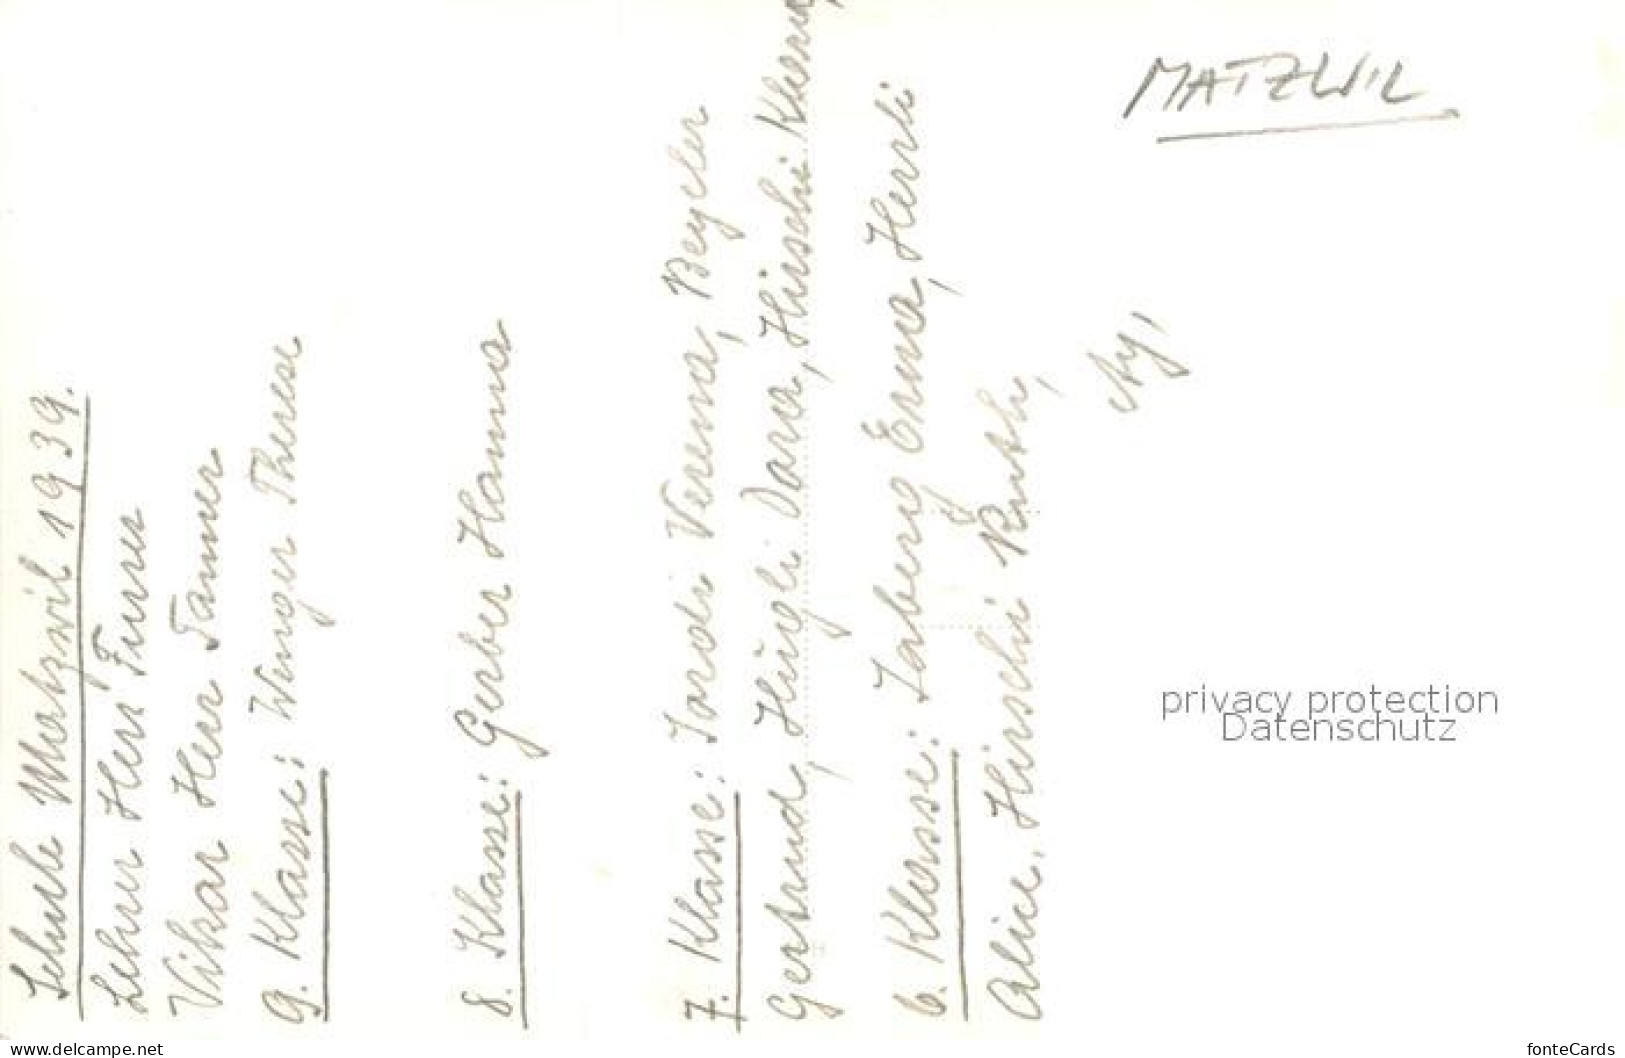 Schule Matzwil 1939.
Lehrer Herr Furrer
Vikar Herr Tanner
9. Klasse: Wenger Therese
8. Klasse: Gerber Hanna
7. Klasse: Jordi Verena, Beyeler
Gertrud, Hügli Dora, Hirschi Klara,
6. Klasse: Salzberg Erna, Herrli
Alice, Hirschi Ruth,
MATZWIL
privacy protection
Datenschutz
www.delcampe.net
fonteCards